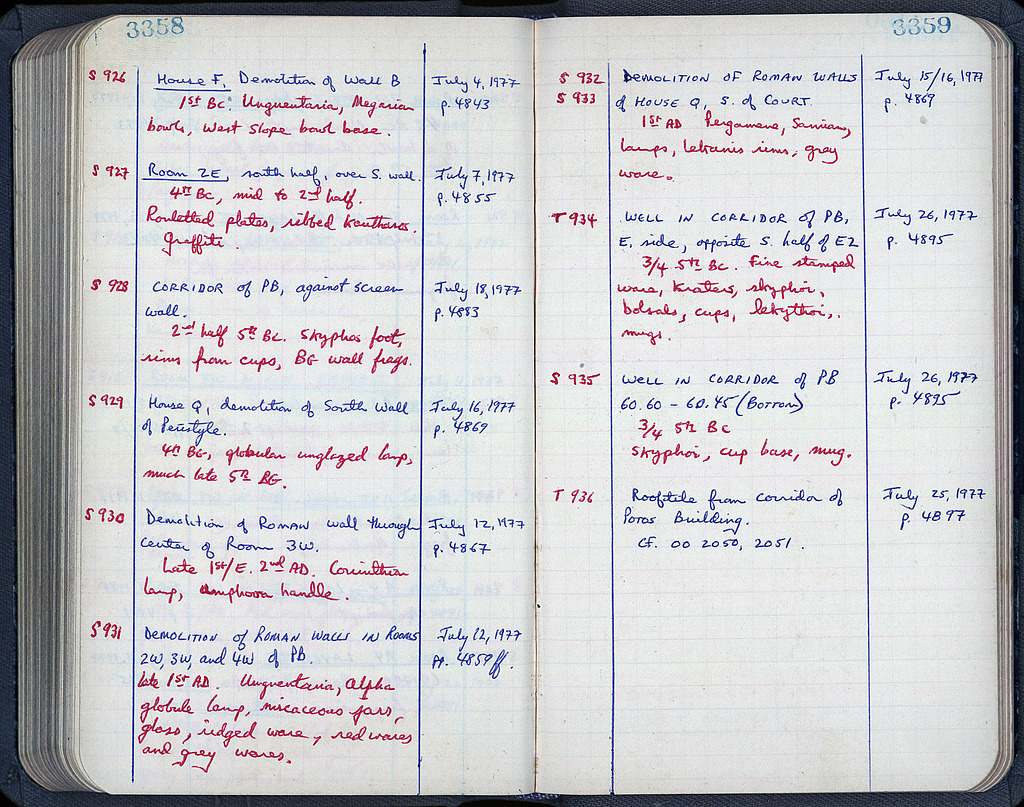 3358
S 926 House F, Demolition of Wall B July 4, 1977
1st BC: Unguentaria, Megarian p. 4843
bowls, West Slope bowl base.
S 927 Room 2E, south half, over S. wall. July 7, 1977
4th BC, mid to 2nd half. p. 4855
Rouletted plates, ribbed kantharos.
Graffiti.
S 928 CORRIDOR of PB, against screen July 18, 1977
wall. p. 4883
2nd half 5th BC. Skyphos foot,
rims from cups, BG wall frags.
S 929 House Q, demolition of South Wall July 16, 1977
of Peristyle. p. 4869
4th BG, globular unglazed lamp,
much late 5th BG.
S 930 Demolition of ROMAN wall through July 12, 1977
center of Room 3W. p. 4867
Late 1st/E. 2nd AD. Corinthian
lamp, amphora handle.
S 931 DEMOLITION of ROMAN WALLS IN ROOMS July 12, 1977
2W, 3W, and 4W of PB. pp. 4859 ff.
late 1st AD. Unguentaria, Alpha
globule lamp, micaceous jars,
glass, ridged ware, red wares
and grey wares.
3359
S 932 DEMOLITION OF ROMAN WALLS July 15/16, 1977
S 933 of HOUSE Q, S. of COURT. p. 4869
1st AD Pergamene, Samian,
lamps, lekanis rims, grey
ware.
T 934 WELL IN CORRIDOR of PB, July 26, 1977
E, side, opposite S. half of E2 p. 4895
3/4 5th BC. Fine stamped
ware, kraters, skyphoi,
bolsals, cups, lekythoi,
mugs.
S 935 WELL IN CORRIDOR of PB July 26, 1977
60.60 - 60.45 (BOTTOM) p. 4895
3/4 5th BC
skyphoi, cup base, mug.
T 936 Rooftile from corridor of July 25, 1977
Poros Building. p. 4897
CF. OO 2050, 2051.